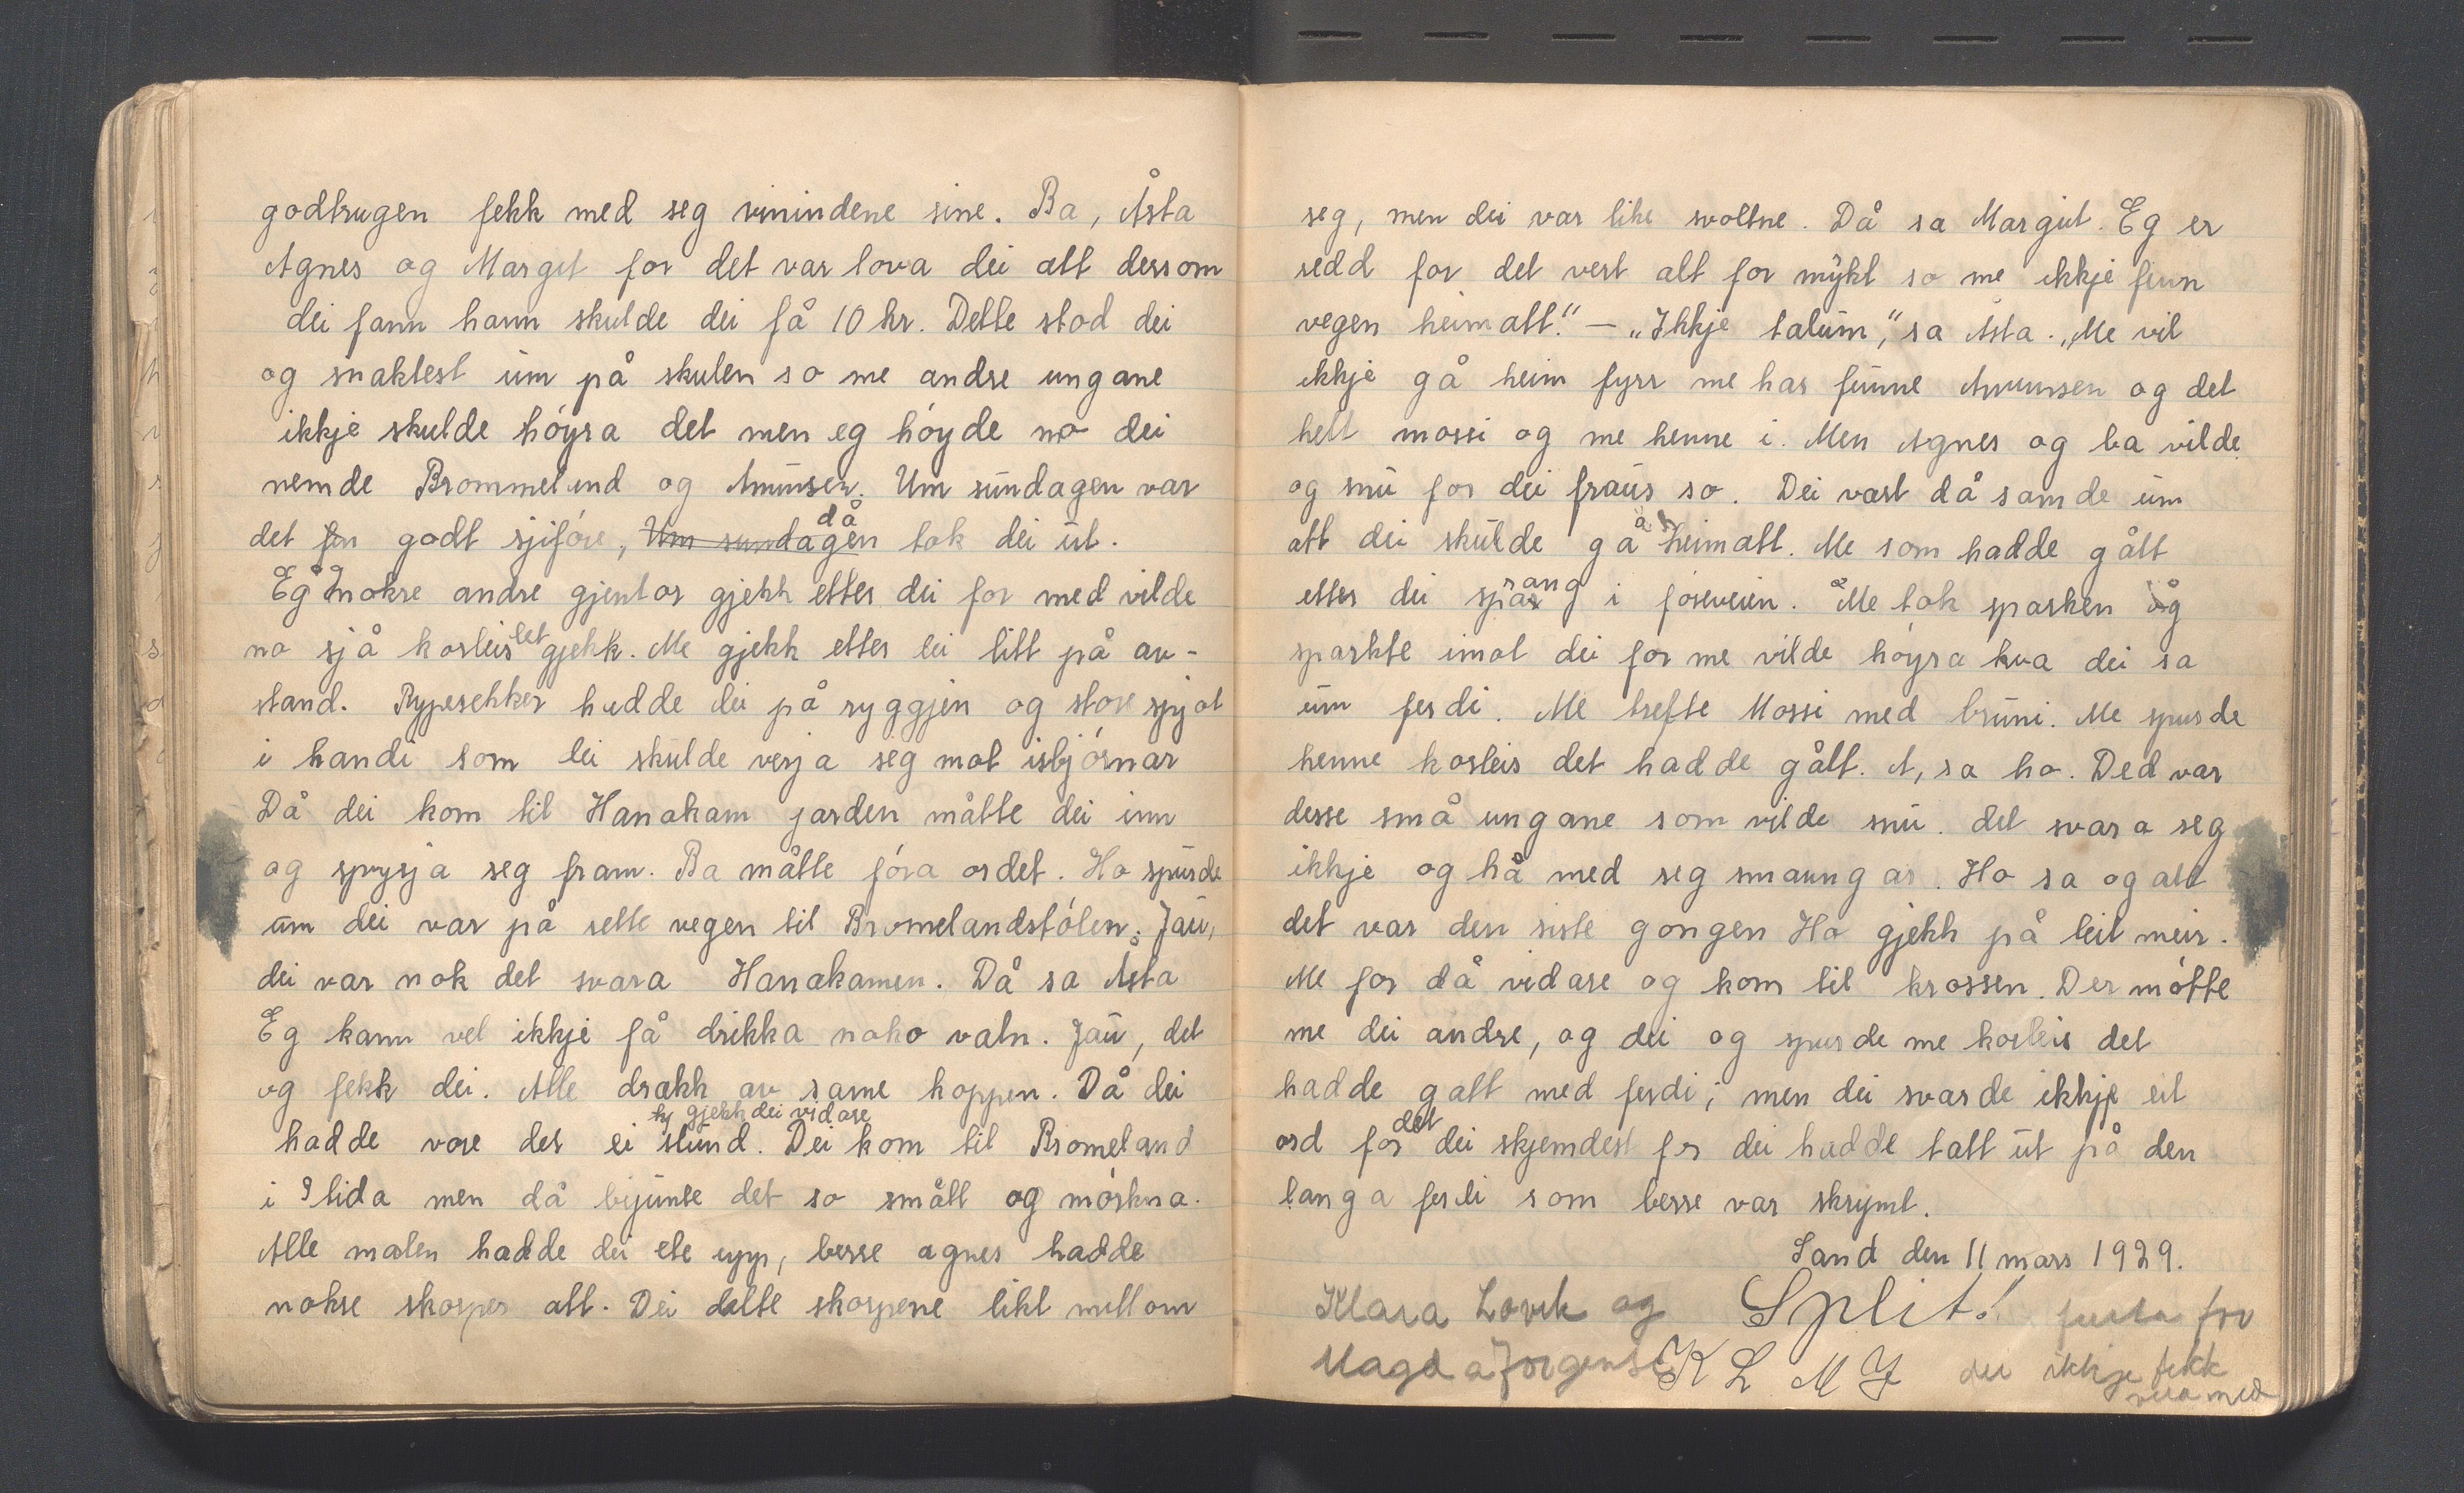 godtrugen fekk med seg vinindene sine. Ba, Åsta
Agnes og Margit for det var lova dei att dersom
dei fann hann skulde dei få 10 kr. Dette stod dei
og snaktest um på skulen so me andre ungane
ikkje skulde høyra det men eg høyde no dei
nemde Brommeland og Amunsen. Um sundagen var
det godt sjiføre, Um sundagen då tok dei ut.
Eg og nokre andre gjentor gjekk etter dei for med vilde
no sjå korleis det gjekk. Me gjekk etter dei litt på av-
stand. Rypesekker hadde dei på ryggjen og store spjot
i handi som dei skulde verja seg mot isbjørnar
Då dei kom til Hanakam garden måtte dei inn
og spyrja seg fram. Ba måtte føra ordet. Ho spurde
um dei var på rette vegen til Bromelandstølen. Jau,
dei var nok det svara Hanakamen. Då sa Åsta
Eg kann vel ikkje få drikka noko vatn. Jau, det
og fekk dei. Alle drakk av same koppen. Då dei
hadde vore der ei stund. gjekk dei vidare Dei kom til Bromeland
i 9 tida men då bijunte det so smått og mørkna.
Alle maten hadde dei ete upp, berre agnes hadde
nokre skorper att. Dei delte skorpene likt millom
seg, men dei var like svoltne. Då sa Margit. Eg er
redd for det vert alt for mykt so me ikkje finn
vegen heimatt." – „Ikkje talum," sa Åsta. „Me vil
ikkje gå heim fyrr me har funne Amunsen og det
helt mossi og me henne i. Men Agnes og ba vilde
og snu for dei fraus so. Dei vart då samde um
att dei skulde gå heimatt. Me som hadde gått
etter dei sprang i foreveien. Me tok sparken og
sparkte imot dei for me vilde høyra kva dei sa
um ferdi. Me trefte Mossi med bruni. Me spurde
henne korleis det hadde gått. A, sa ho. Ded var
desse små ungane som vilde snu. det svara seg
ikkje og hå med seg smaungar. Ho sa og att
det var den siste gongen Ho gjekk på leit meir.
Me for då vidare og kom til krossen. Der møtte
me dei andre, og dei og spurde me korleis det
hadde gatt med ferdi; men dei svarde ikkje eit
ord for det dei skjemdest for dei hadde tatt ut på den
langa ferdi som berre var skrymt.
Sand den 11 mars 1929.
Klara Lovik og Split!
Magda Jørgensen K L M J dei ikkje fekk
vera med